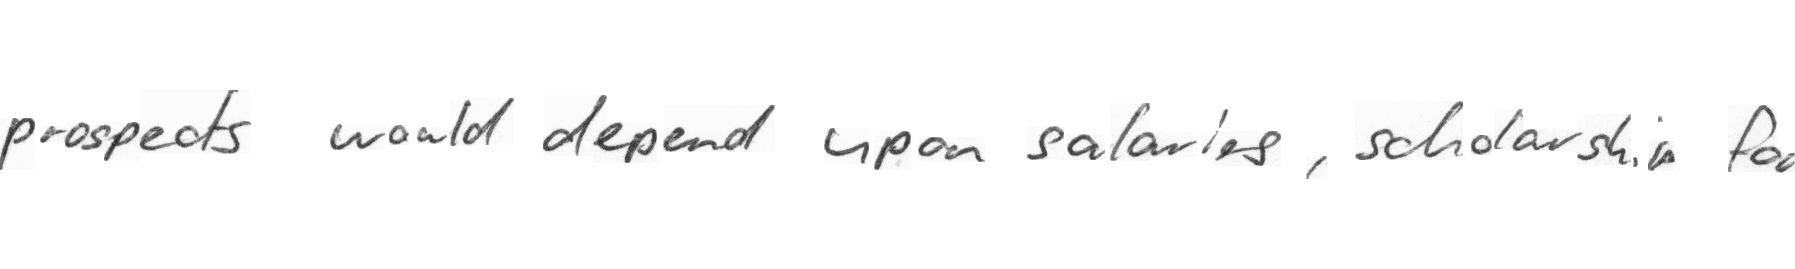 prospects would depend upon salaries, scholarship